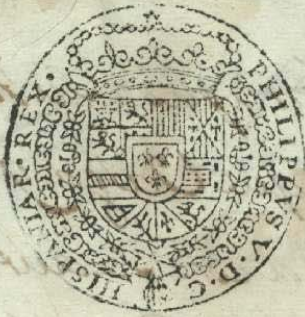 PHILIPPVS V. D. G. HISPANIAR. REX.